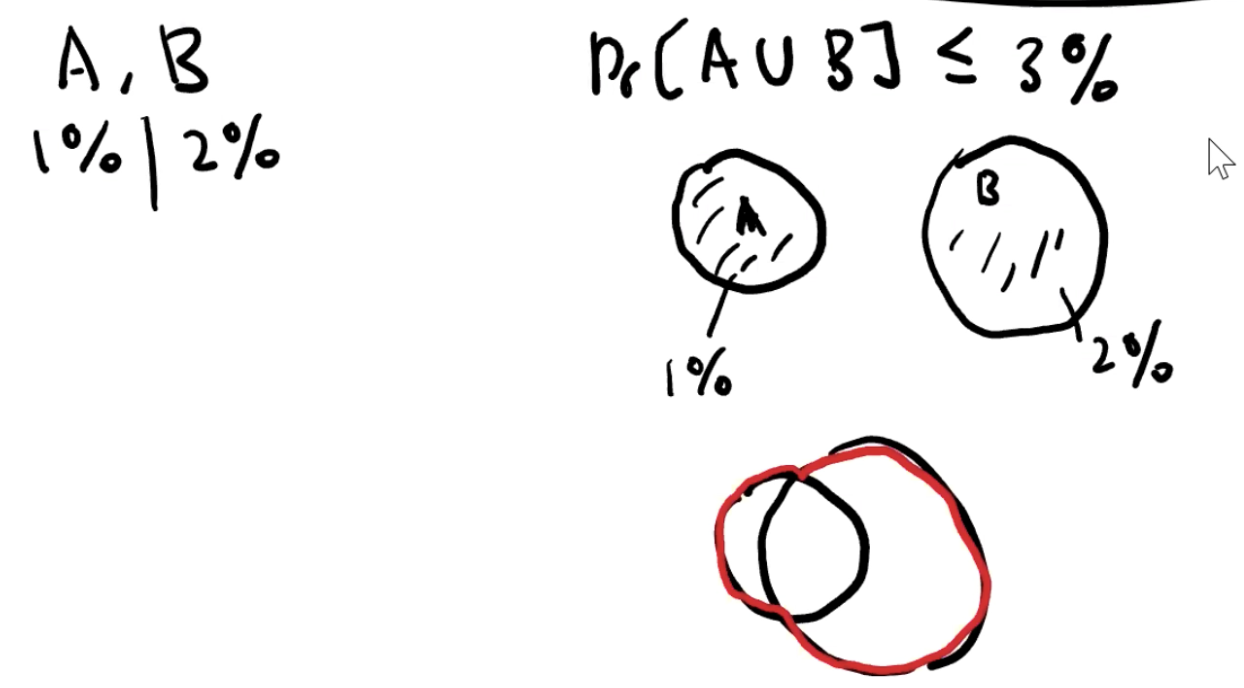 A, B
1% | 2%
Pr[A ∪ B] ≤ 3%
A
B
1%
2%